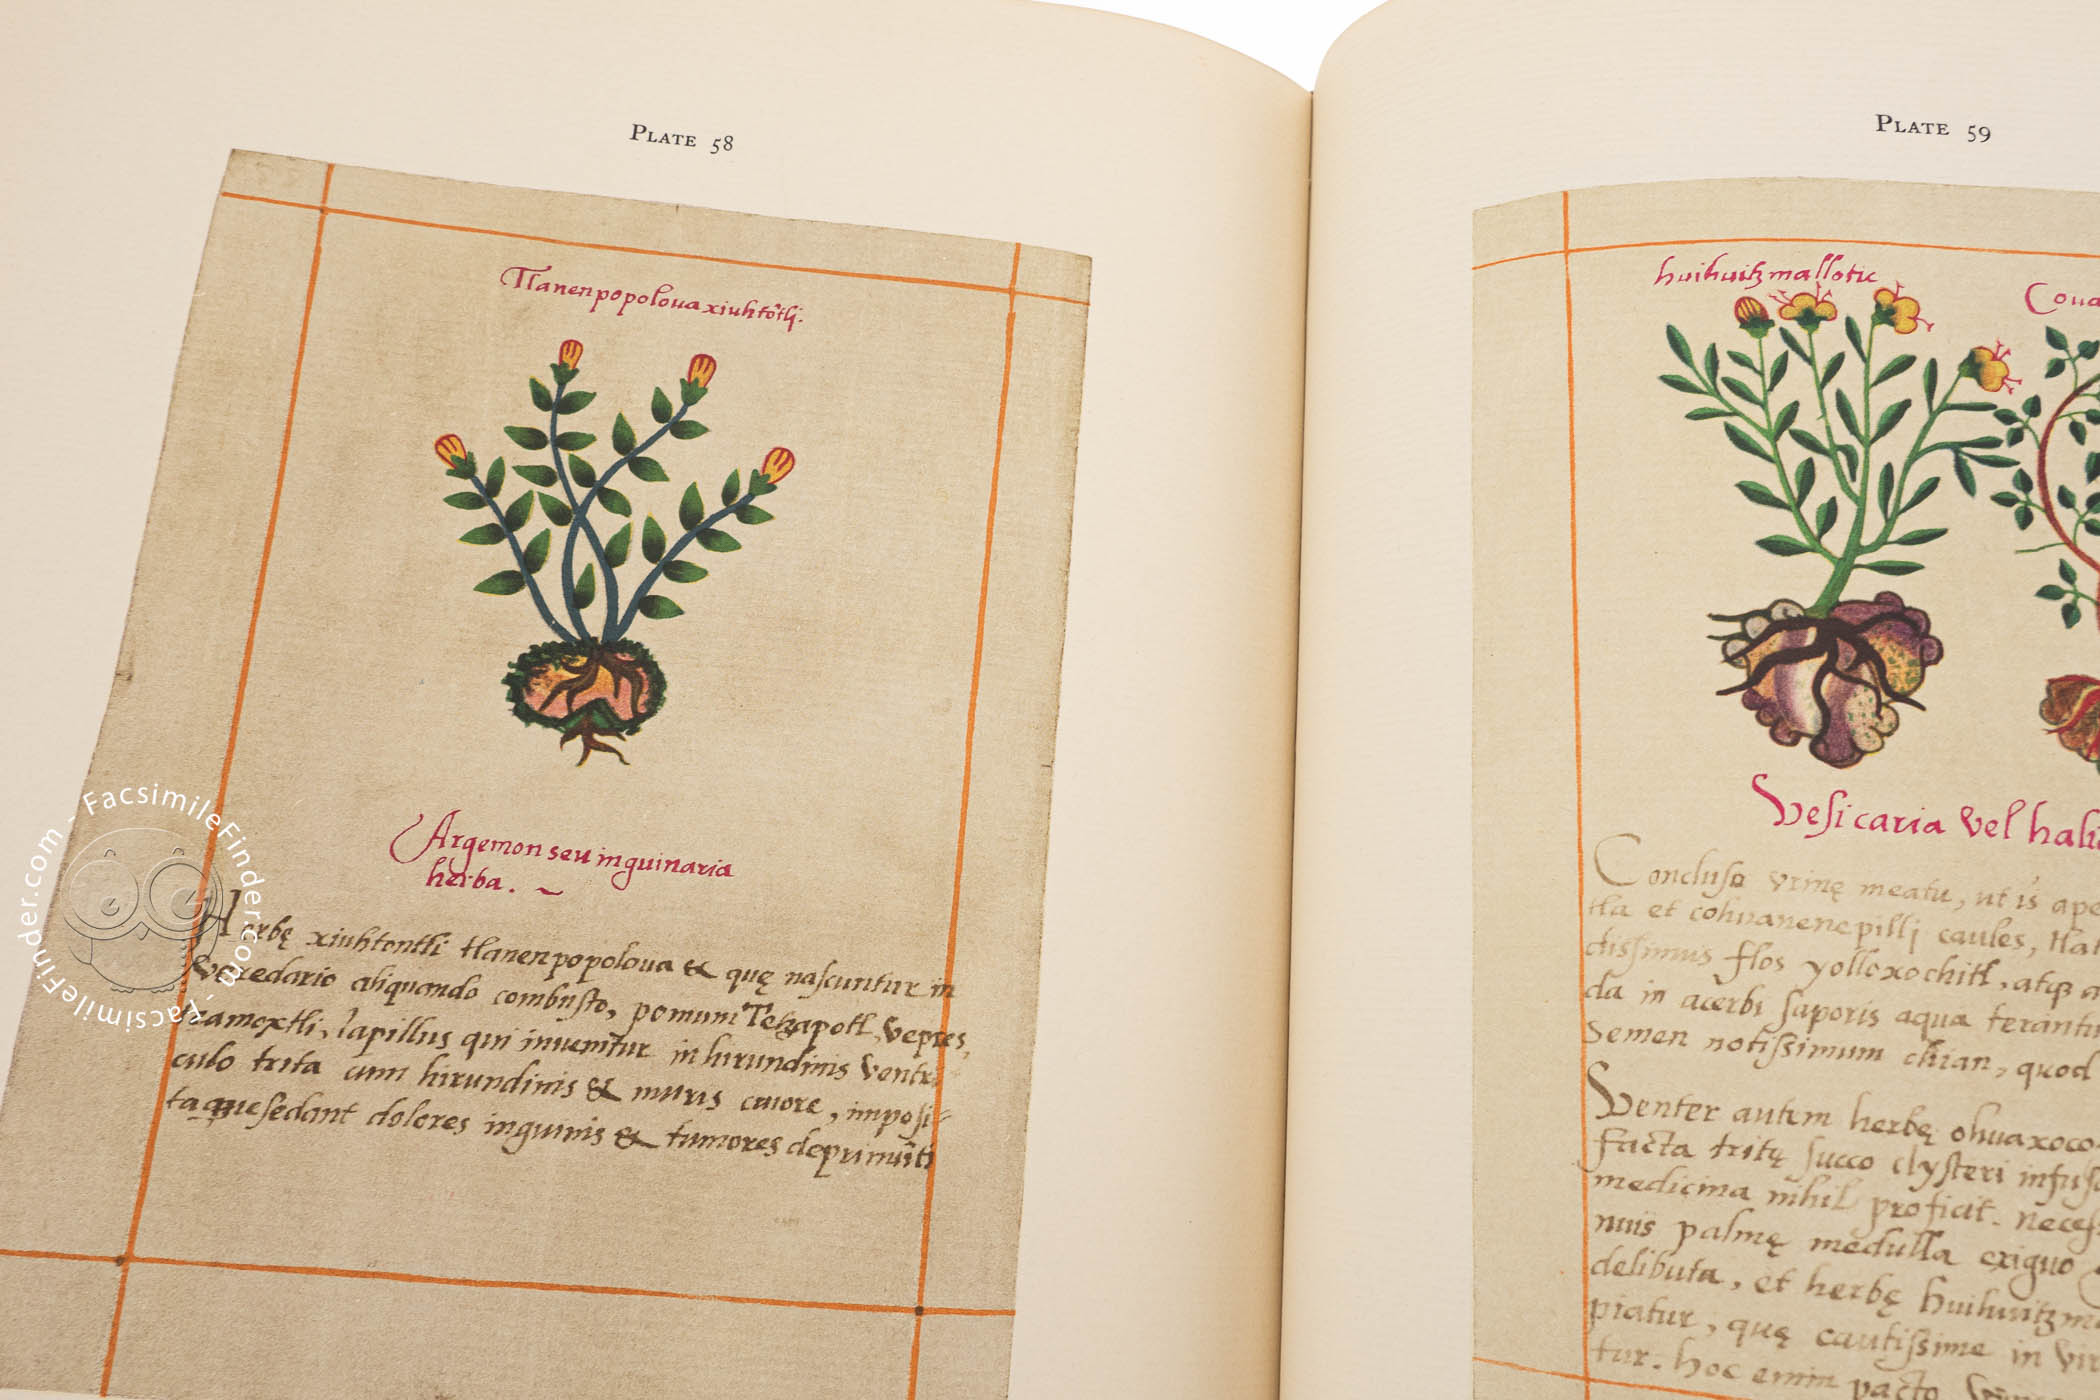 PLATE 58
Tlanenpopoloua xiuhtōtlj.
Argemon seu inguinaria
herba.
Herbę xiuhtontli tlanenpopoloua & quę nascuntur in
veredario aliquando combusto, pomum Tetzapotl, vepres,
tlamoxtli, lapillus qui inuenitur in hirundinis ventri
culo trita cum hirundinis & muris cruore, imposi-
taque sedant dolores inguinis & tumores deprimūt
PLATE 59
huihuitz mallotic
Coua
Vesicaria vel hali
Concluso vrinę meatu, ut is ape
tla et cohuanenepillj caules, tla
dissimus flos yolloxochitl, atq̃ a
da in acerbi saporis aqua terantu
Semen notissimum chian, quod
Venter autem herbę ohuaxoco
facta tritę succo clysteri infus
medicina nihil proficit. neces
nuis palmę medulla exiguo
delibuta, et herbę huihuitzma
piatur, quę cautissime in vir
tur. hoc enim pacto
FacsimileFinder.com - FacsimileFinder.com - FacsimileFinder.com